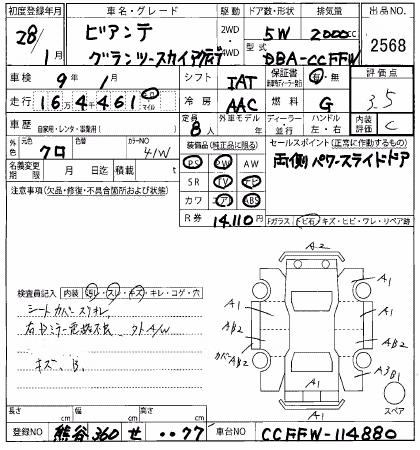 初度登録年月 車名・グレード 駆動 ドア数・形状 排気量 出品NO
28/1月 ビアンテ 2WD・4WD 5W 2000cc 2568
グランツースカイアクティブ 型式 DBA-CCFFW
車検 9年1月 シフト IAT 保証書 有・無 評価点
走行 16万4千461 キロ マイル 冷房 AAC 燃料 G 3.5
車歴 自家用・レンタ・事業用( ) 定員 8人 外車モデル ディーラー・並行 ハンドル 左・右 内装評価 C
外色 元色 クロ 色替 カラーNO 41W 装備品(純正品に限る) セールスポイント(正常に作動するもの)
名義変更期限 月 日迄 積載 t PS PW AW 両側パワースライドドア
注意事項(欠品・修復・不具合箇所および状態) SR TV ナビ
カワ エア ABS
R券 14,110 Fガラス(トビ石・キズ・ヒビ・ワレ・リペア跡)
A2
検査員記入 内装 汚レ・スレ・キズ・キレ・コゲ・穴
A1 A1
シートカバースリキレ
AB2 A1
右Dミラー電格不良
AB2 AB2
キズ、B
A3 B1
A1 スペア
長さ cm 幅 cm 高さ cm
登録NO 熊谷 360 せ ・・77 車台NO CCFFW-114880